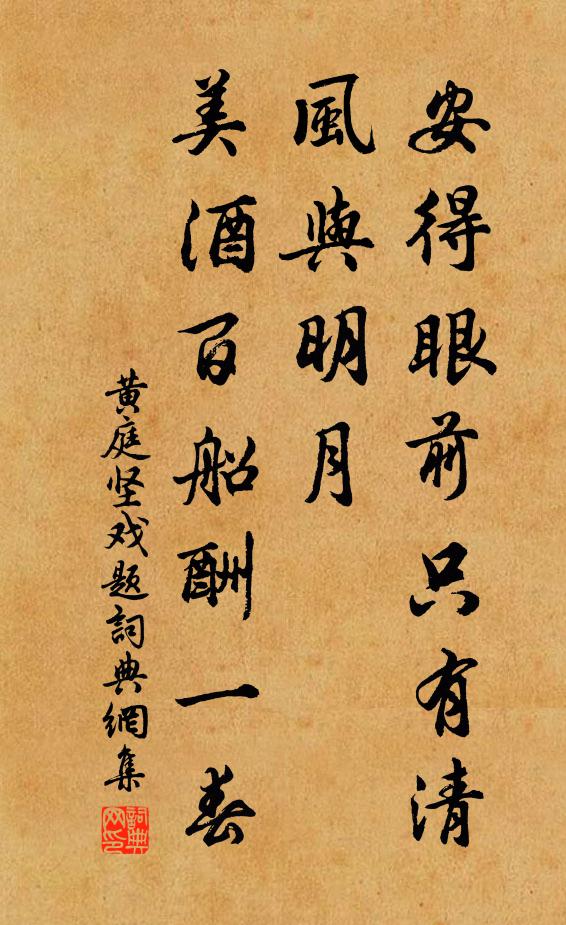 安得眼前只有清
風與明月
美酒百船酬一春
黄庭坚戏题詞典網集
詞典
网印